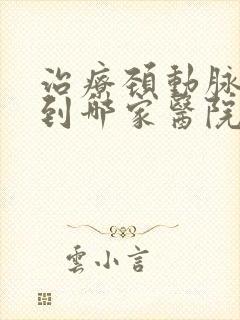 治療頚動脈
到哪家醫院
雲小言